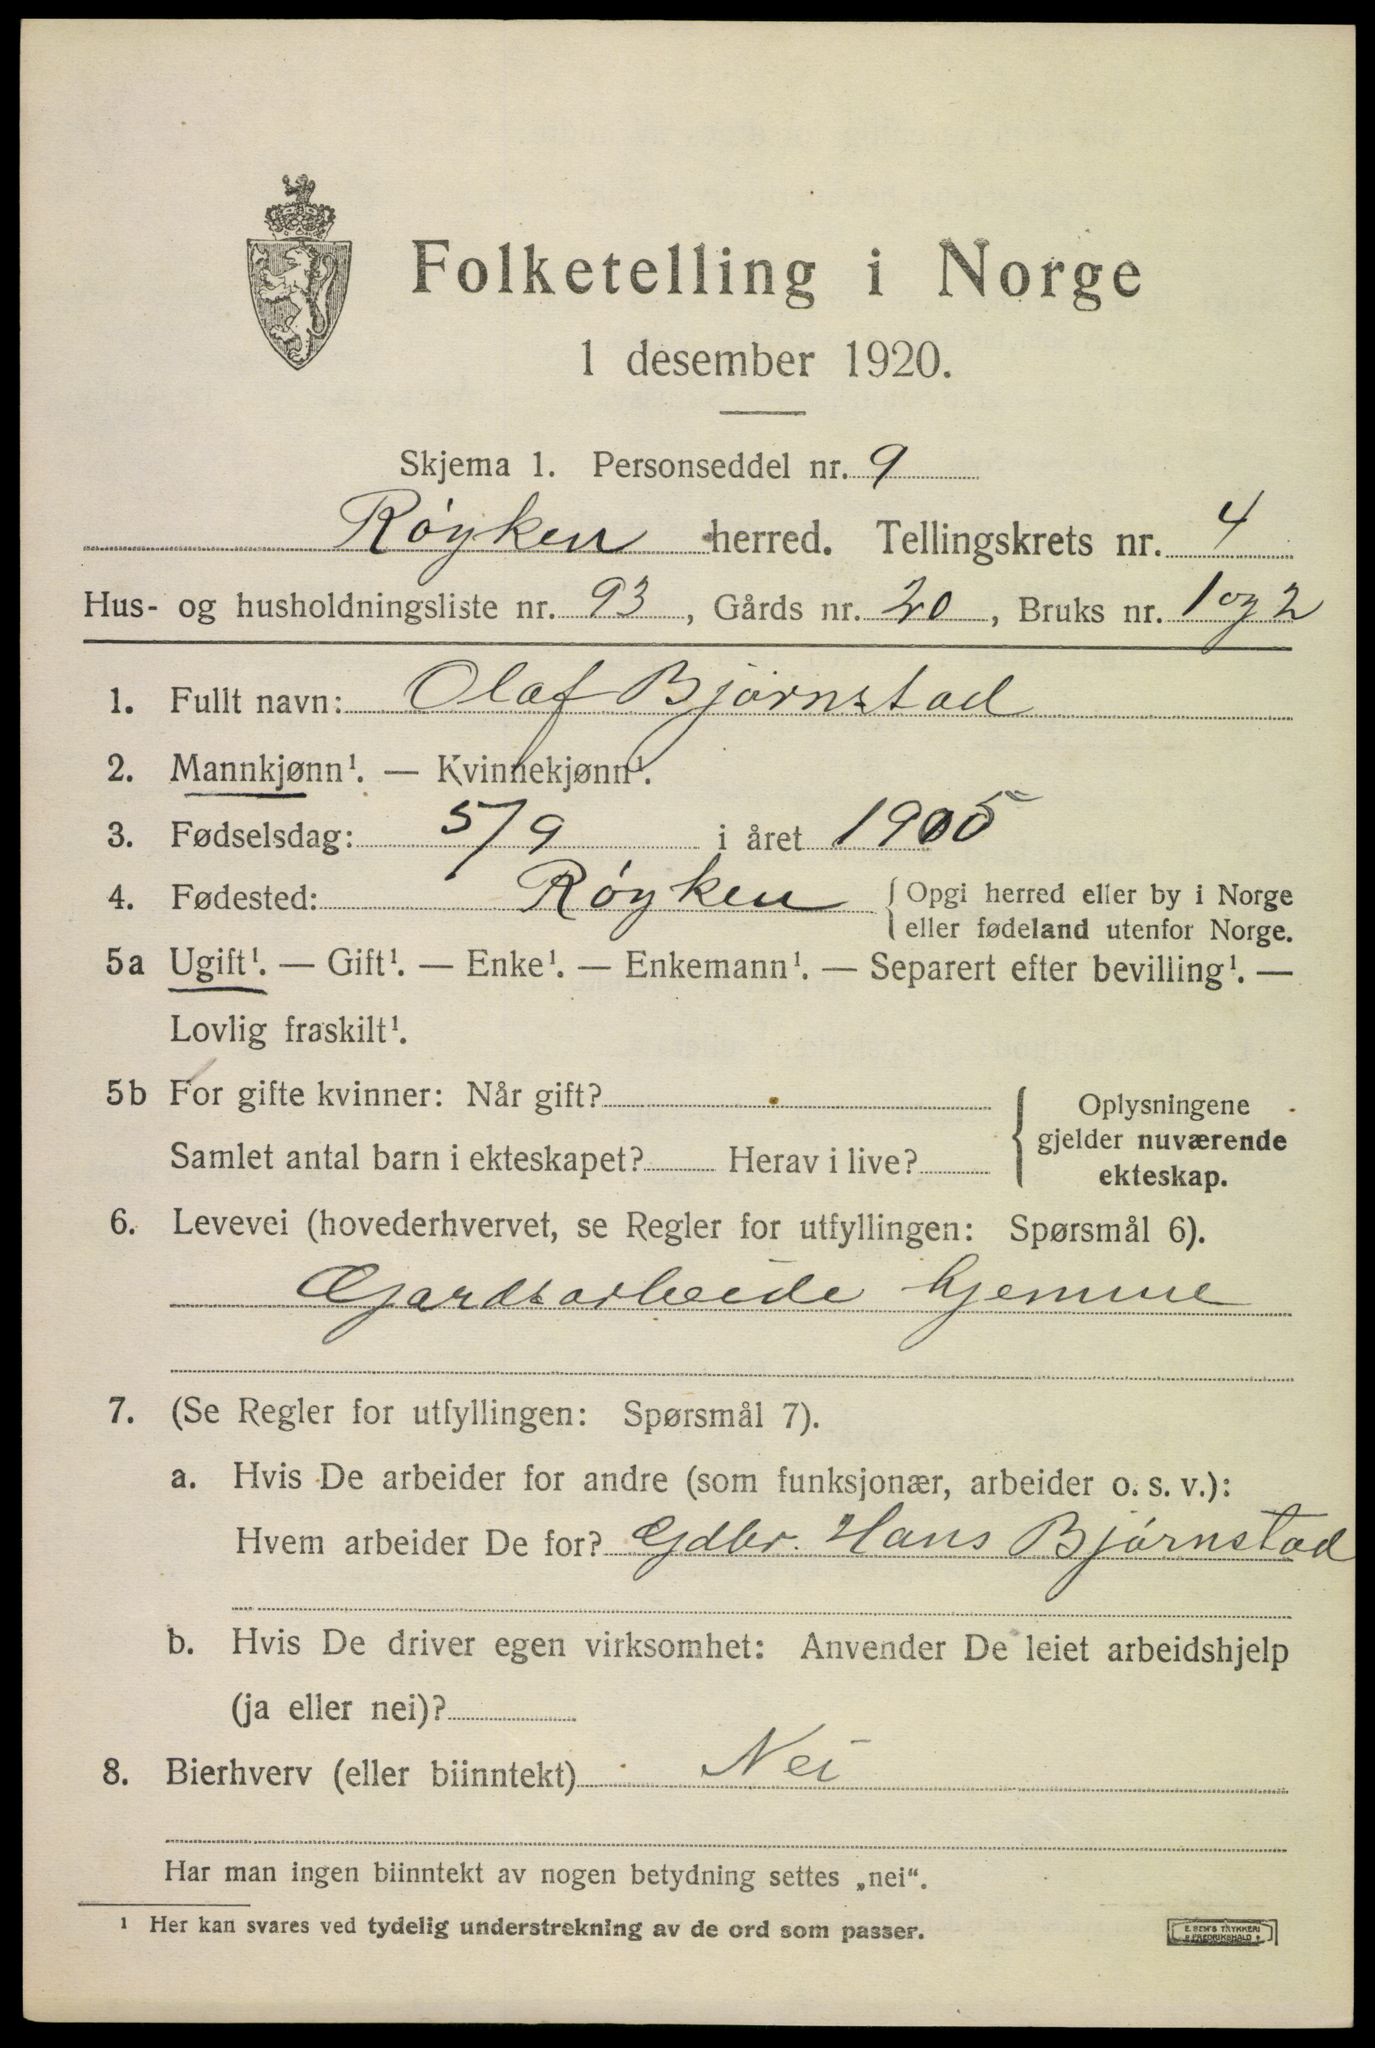 Folketelling i Norge
1 desember 1920.
Skjema 1. Personseddel nr. 9
Røyken herred. Tellingskrets nr. 4
Hus- og husholdningsliste nr. 93, Gårds nr. 20, Bruks nr. 1 og 2
1. Fullt navn: Olaf Bjørnstad
2. Mannkjønn¹. — Kvinnekjønn¹.
3. Fødselsdag: 5/9 i året 1905
4. Fødested: Røyken { Opgi herred eller by i Norge
eller fødeland utenfor Norge.
5a Ugift¹. — Gift¹. — Enke¹. — Enkemann¹. — Separert efter bevilling¹. —
Lovlig fraskilt¹.
5b For gifte kvinner: Når gift? { Oplysningene
gjelder nuværende
Samlet antal barn i ekteskapet? Herav i live?
ekteskap.
6. Levevei (hovederhvervet, se Regler for utfyllingen: Spørsmål 6).
Gjardsarbeide hjemme
7. (Se Regler for utfyllingen: Spørsmål 7).
a. Hvis De arbeider for andre (som funksjonær, arbeider o. s. v.):
Hvem arbeider De for? Gdbr. Hans Bjørnstad
b. Hvis De driver egen virksomhet: Anvender De leiet arbeidshjelp
(ja eller nei)?
8. Bierhverv (eller biinntekt) Nei
Har man ingen biinntekt av nogen betydning settes „nei“.
¹ Her kan svares ved tydelig understrekning av de ord som passer.
E. SEM'S TRYKKERI
FREDRIKSHALD